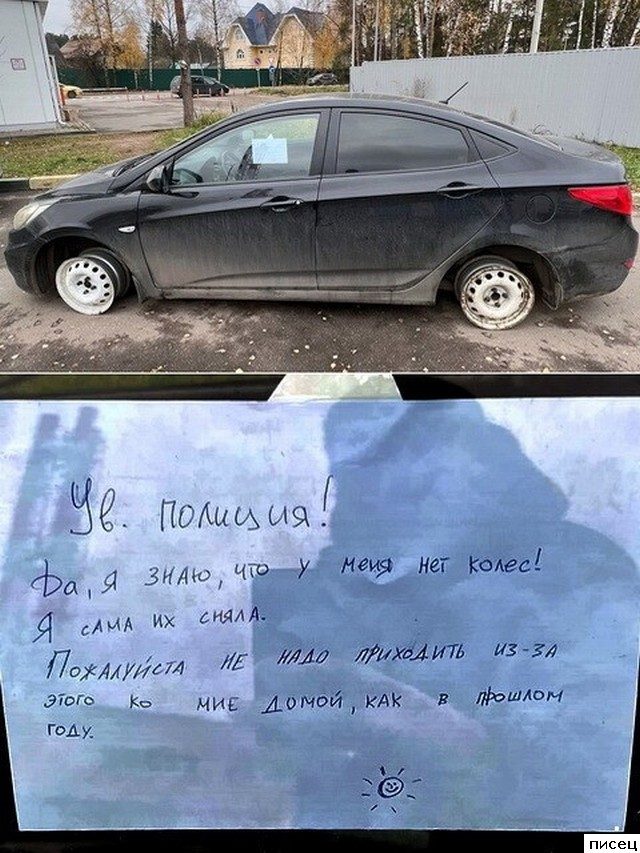 Ув. полиция!
Да, я знаю, что у меня нет колес!
Я сама их сняла.
Пожалуйста не надо приходить из-за
этого ко мне домой, как в прошлом
году.
писец